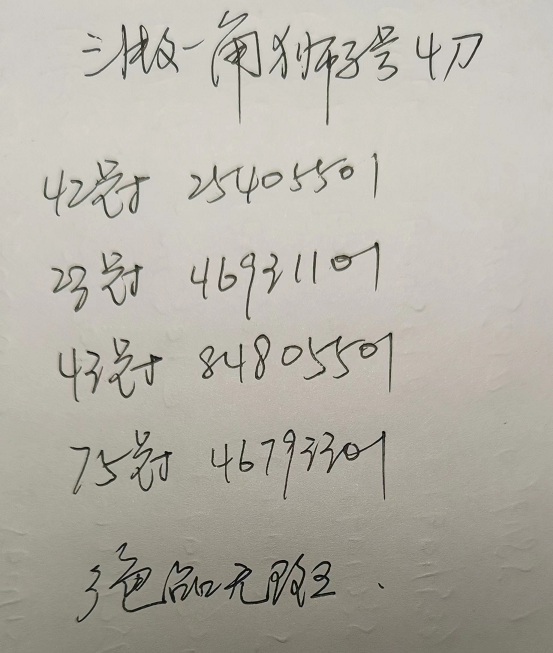 三版一角狮号4刀
42冠 25405501
23冠 46931101
43冠 84805501
75冠 46793301
绝品无斑.